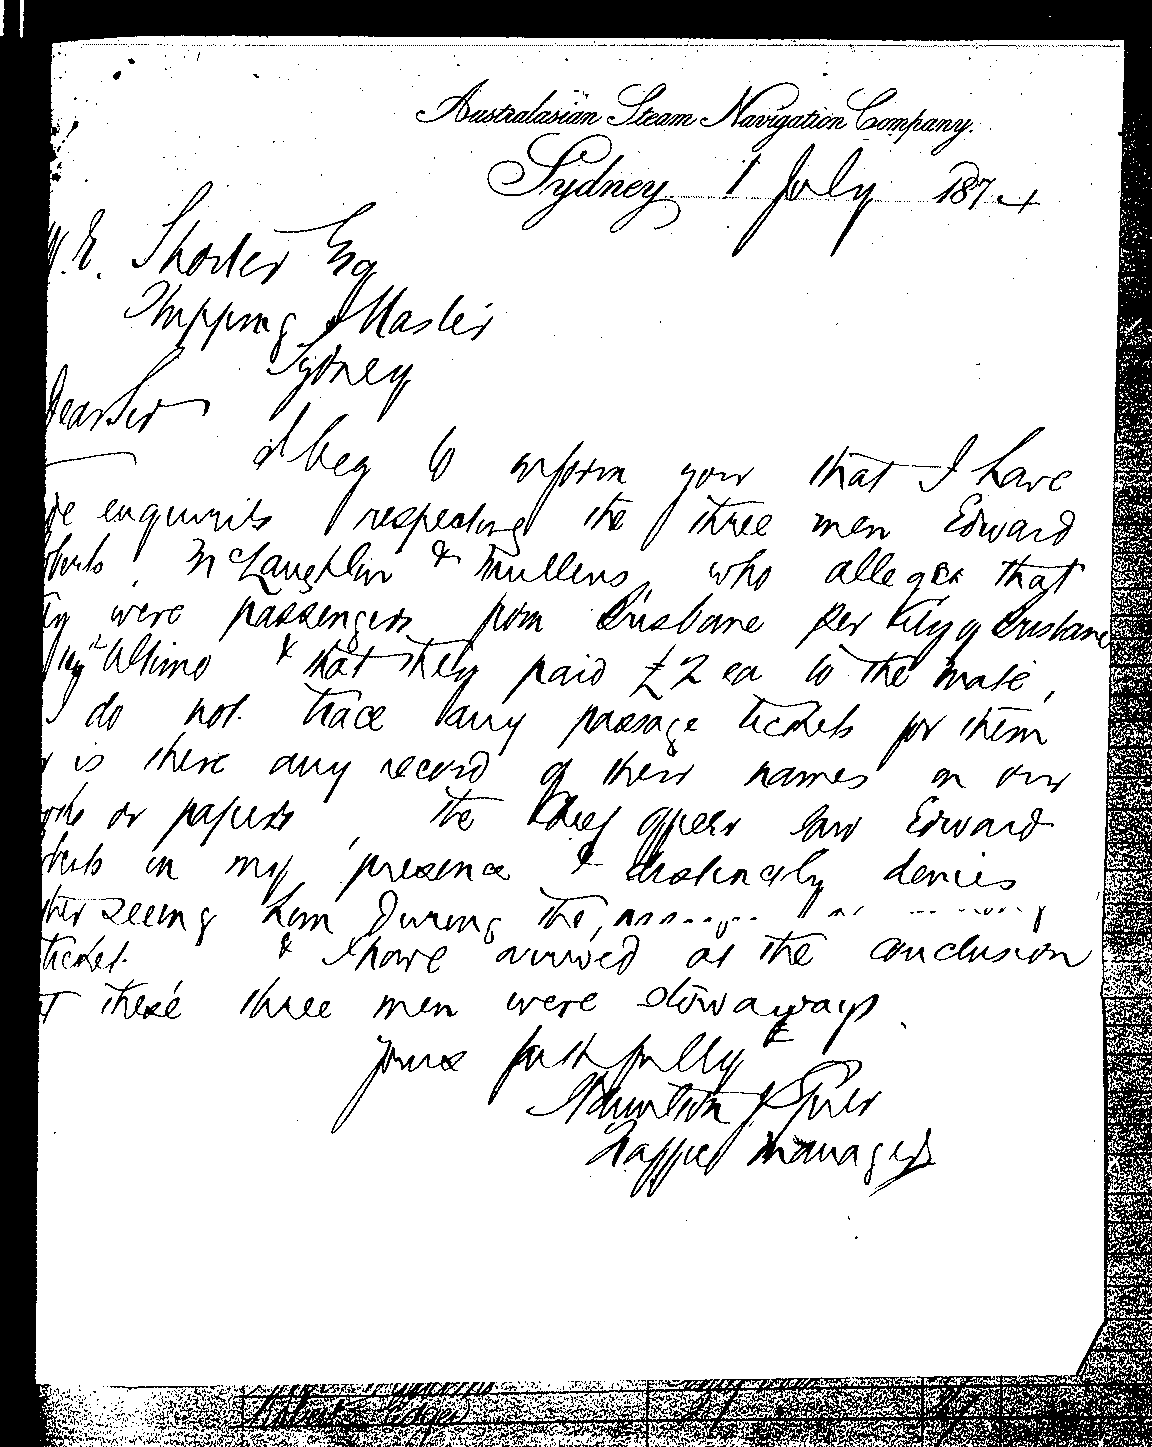 Australasian Steam Navigation Company.
Sydney 1 July 1874
E. Shorter Esq
Shipping Master
Sydney
Dear Sir
I beg to inform you that I have
enquiries respecting the three men Edward
McLaughlin & Mullens, who alleges that
were passengers from Brisbane per City of Brisbane
Ultimo & that they paid £2 ea to the mate,
I do not trace any passage tickets for them
is there any record of their names in our
or papers, the Chief Officer saw Edward
in my presence & distinctly denies
seeing him during the
ticket. & I have arrived at the conclusion
these three men were stowaways.
Yours faithfully
Traffic Manager